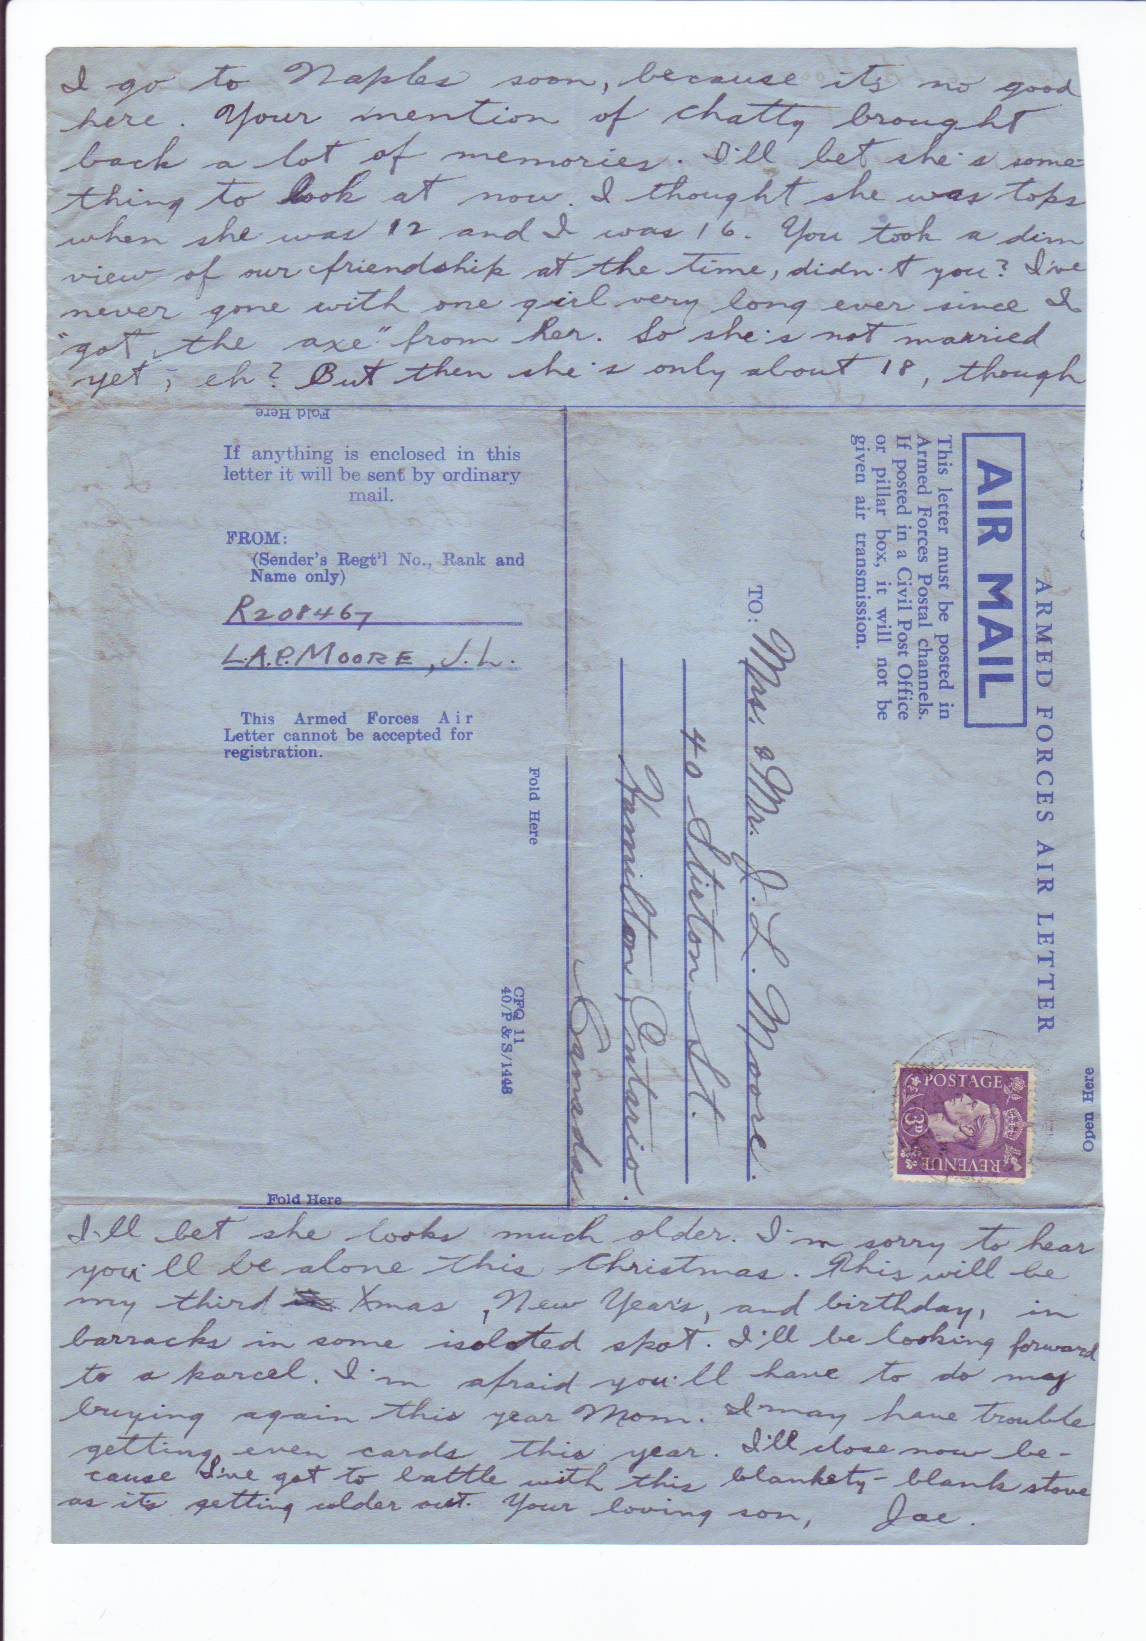 I go to Naples soon, because it's no good
here. Your mention of chatty brought
back a lot of memories. I'll bet she's some-
thing to look at now. I thought she was tops
when she was 12 and I was 16. You took a dim
view of our friendship at the time, didn't you? I've
never gone with one girl very long ever since I
"got the axe" from her. So she's not married
yet, eh? But then she's only about 18, though
Fold Here
If anything is enclosed in this
letter it will be sent by ordinary
mail.
FROM:
(Sender's Regt'l No., Rank and
Name only)
R208467
L.A.P. MOORE, J.L.
This Armed Forces Air
Letter cannot be accepted for
registration.
Fold Here
CFQ 11
40/P & S/1448
Fold Here
ARMED FORCES AIR LETTER
AIR MAIL
This letter must be posted in
Armed Forces Postal channels.
If posted in a Civil Post Office
or pillar box, it will not be
given air transmission.
TO: Mrs. & Mr. J. L. Moore.
40 Stirton St.
Hamilton, Ontario.
Canada.
POSTAGE
3D
REVENUE
Open Here
I'll bet she looks much older. I'm sorry to hear
you'll be alone this Christmas. This will be
my third Xmas, New Year's, and birthday, in
barracks in some isolated spot. I'll be looking forward
to a parcel. I'm afraid you'll have to do my
buying again this year Mom. I may have trouble
getting even cards this year. I'll close now be-
cause I've got to battle with this blankety-blank stove
as it's getting colder out. Your loving son, Joe.